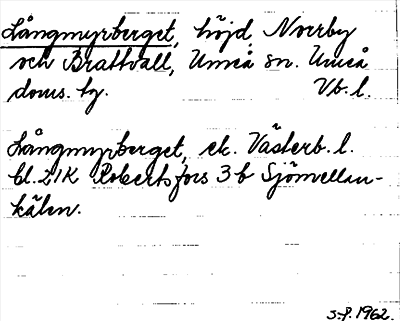 Långmyrberget, höjd, Norrby
och Brattvall, Umeå sn. Umeå
doms. hy. Vb. l.
Långmyrberget, ek. Västerb. l.
bl. 21K Robertsfors 3 b Sjömellan-
kälen.
S-f. 1962.